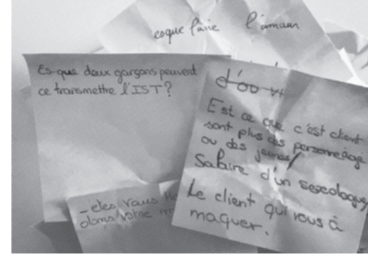 esque faire l'amour
Es-que deux garçons peuvent
ce transmettre l'IST?
Est ce que c'est client
sont plus des personne age
ou des jeunes!
Salaire d'un sexologue,
Le client qui vous à
maquer.
-êtes vous
dans votre